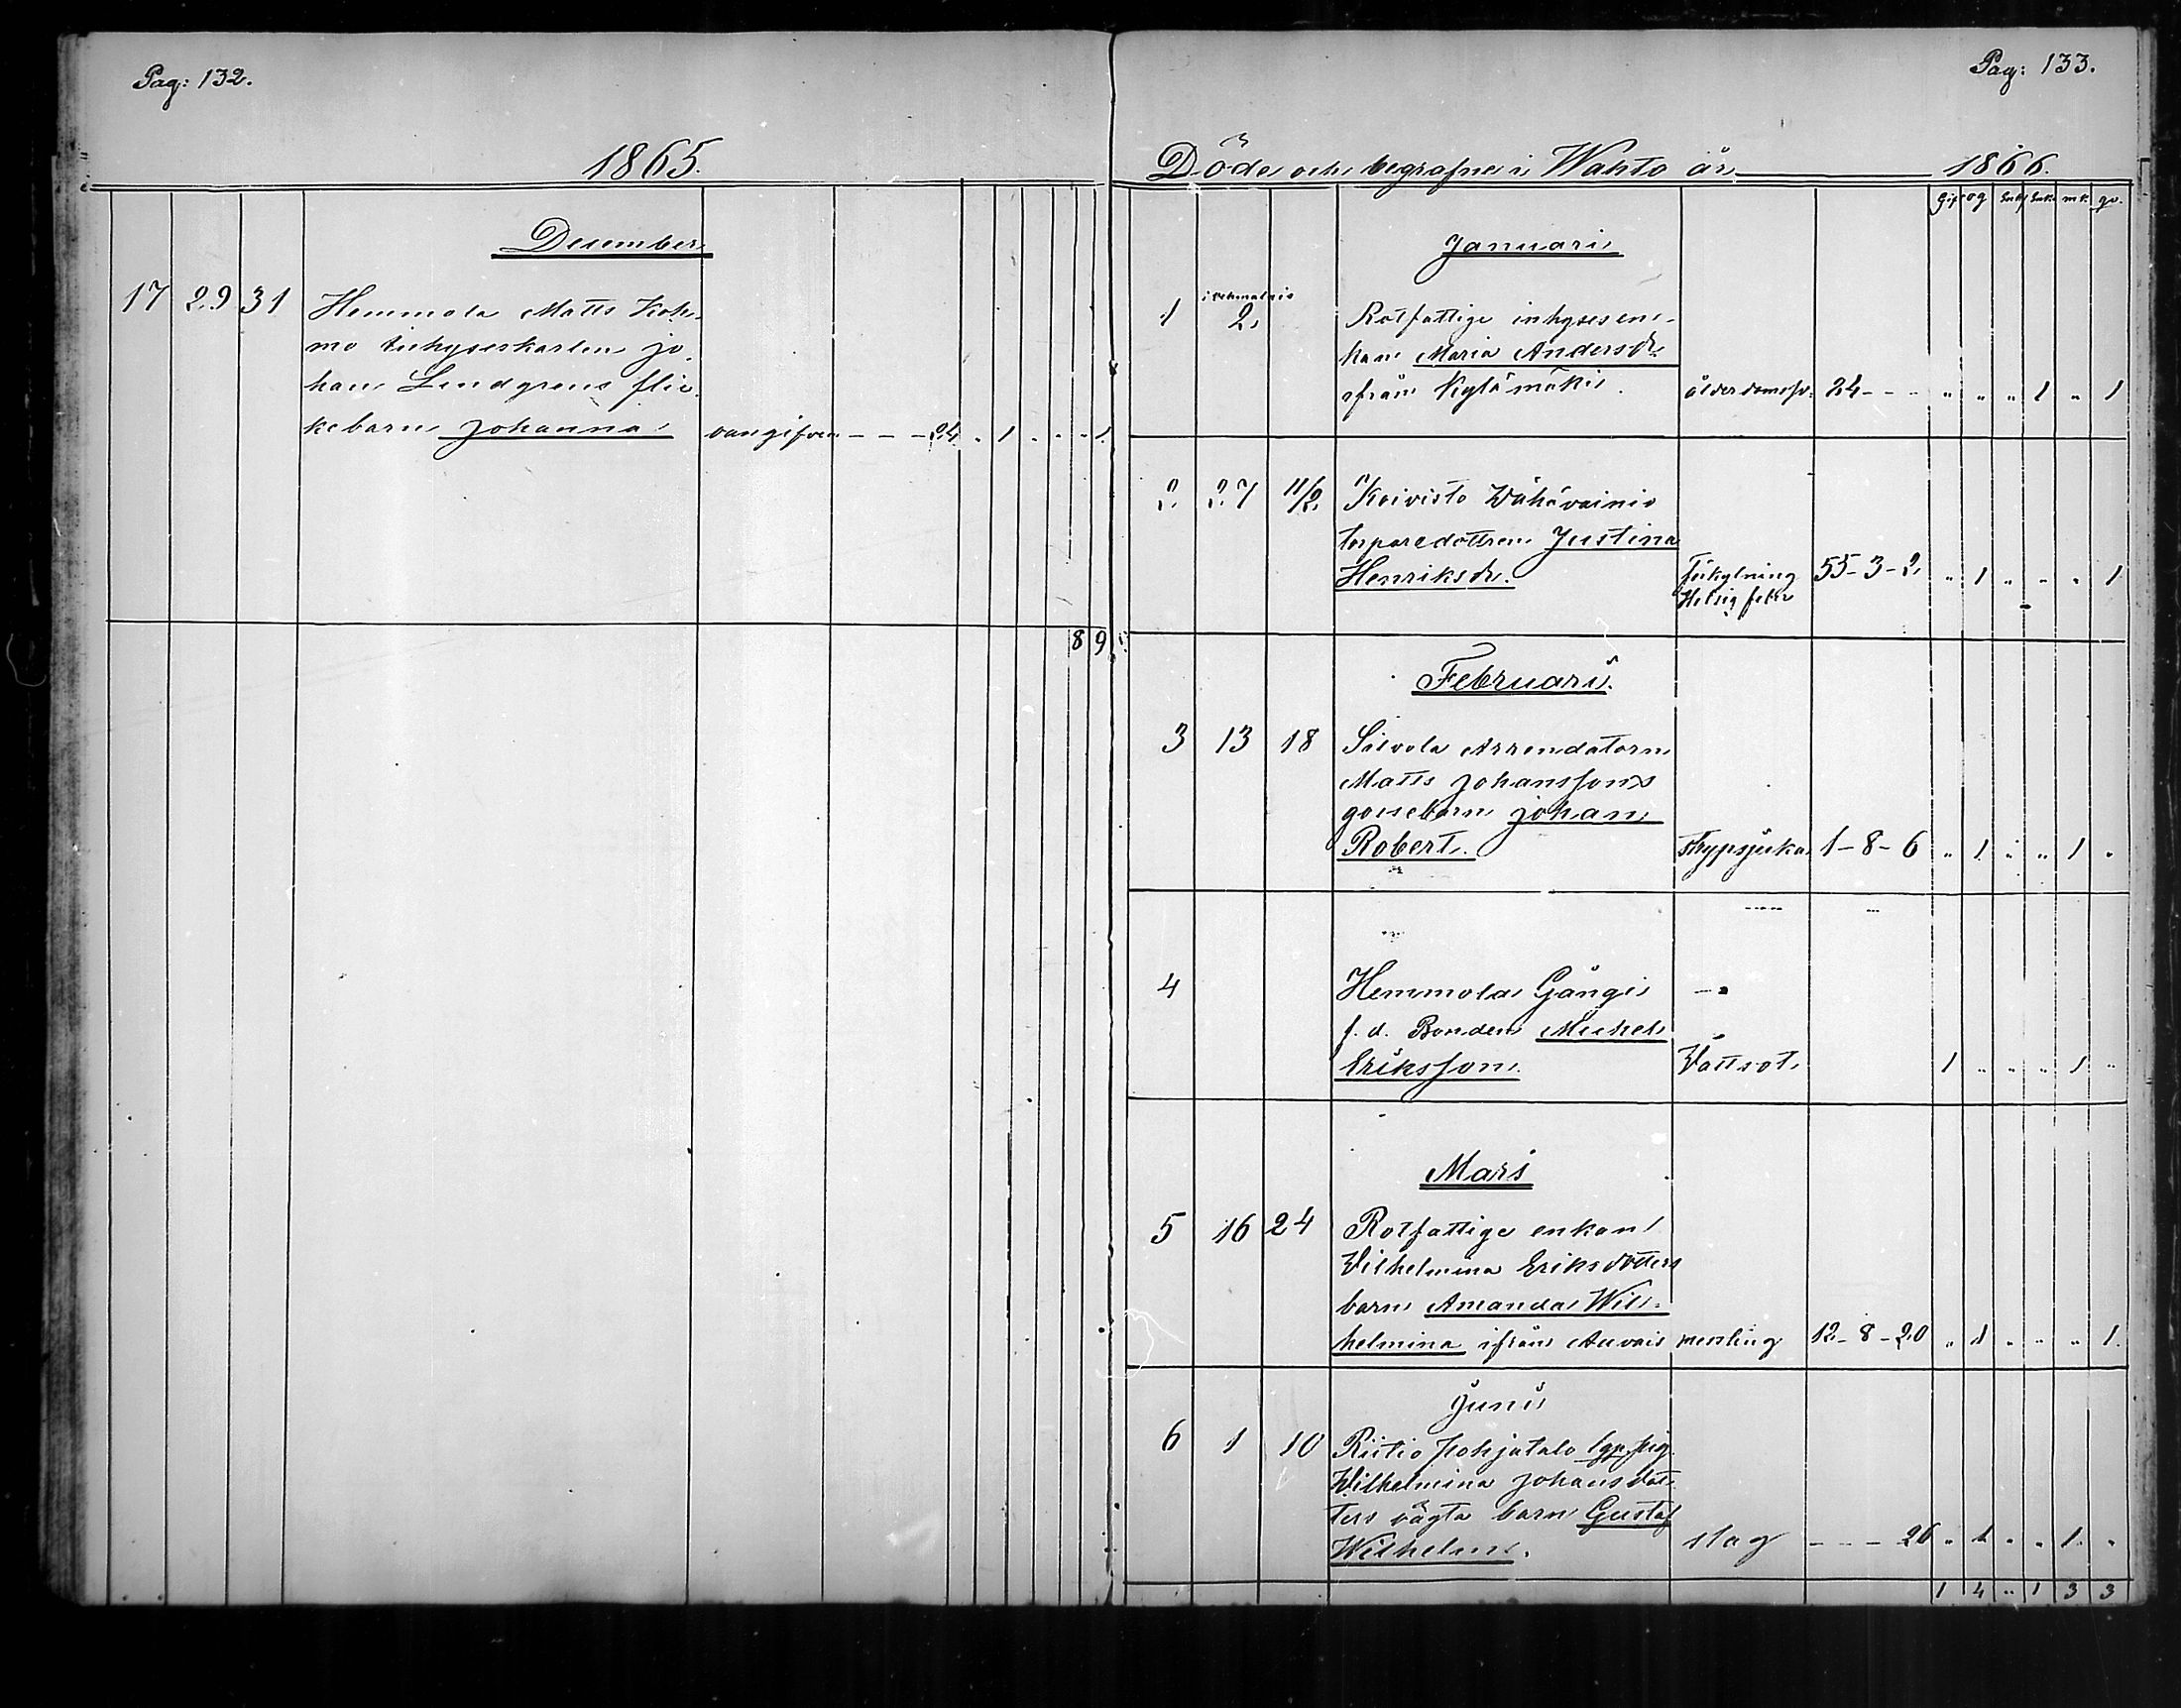 Pag: 132.
1865.
December
17 29 31 Hemmola Matts Koh-
mo inhyseskarlen Jo-
han Lindgrens flic-
kebarn Johanna oangifven - - - 24 " 1 " " " 1
8 9
Pag: 133.
Döde och begrafne i Wahto år 1866.
Gif og Enkl Enka mk. qv.
Januari
1 2 Rotfattige inhysesen-
kan Maria Andersdr
ifrån Kylämäki. ålderdomssv. 84 - - - " " " 1 " 1
2 27 11/2 Koivisto Wähävainio
torparedottren Justina
Henriksdr. Förkylning 55-3-2 " 1 " " " 1
Hetsig feber
Februari.
3 13 18 Siivola Arrendatorn
Matts Johanssons
gossebarn Johan
Robert. Strypsjuka 1-8-6 " 1 " " 1 "
4 Hemmola Gångi
f. d. Bonden Michel
Eriksson. Vattsot 1 " " " 1 "
Mars
5 16 24 Rotfattige enkan
Vilhelmina Eriksdotters
barn Amanda Wil-
helmina ifrån Auvais messling 12-8-20 " 1 " " " 1
Juni
6 1 10 Riitio Pohjatalo pig.
Wilhelmina Johansdot-
ters oägta barn Gustaf
Wilhelm. slag - - - 26 " 1 " " 1 "
1 4 " 1 3 3